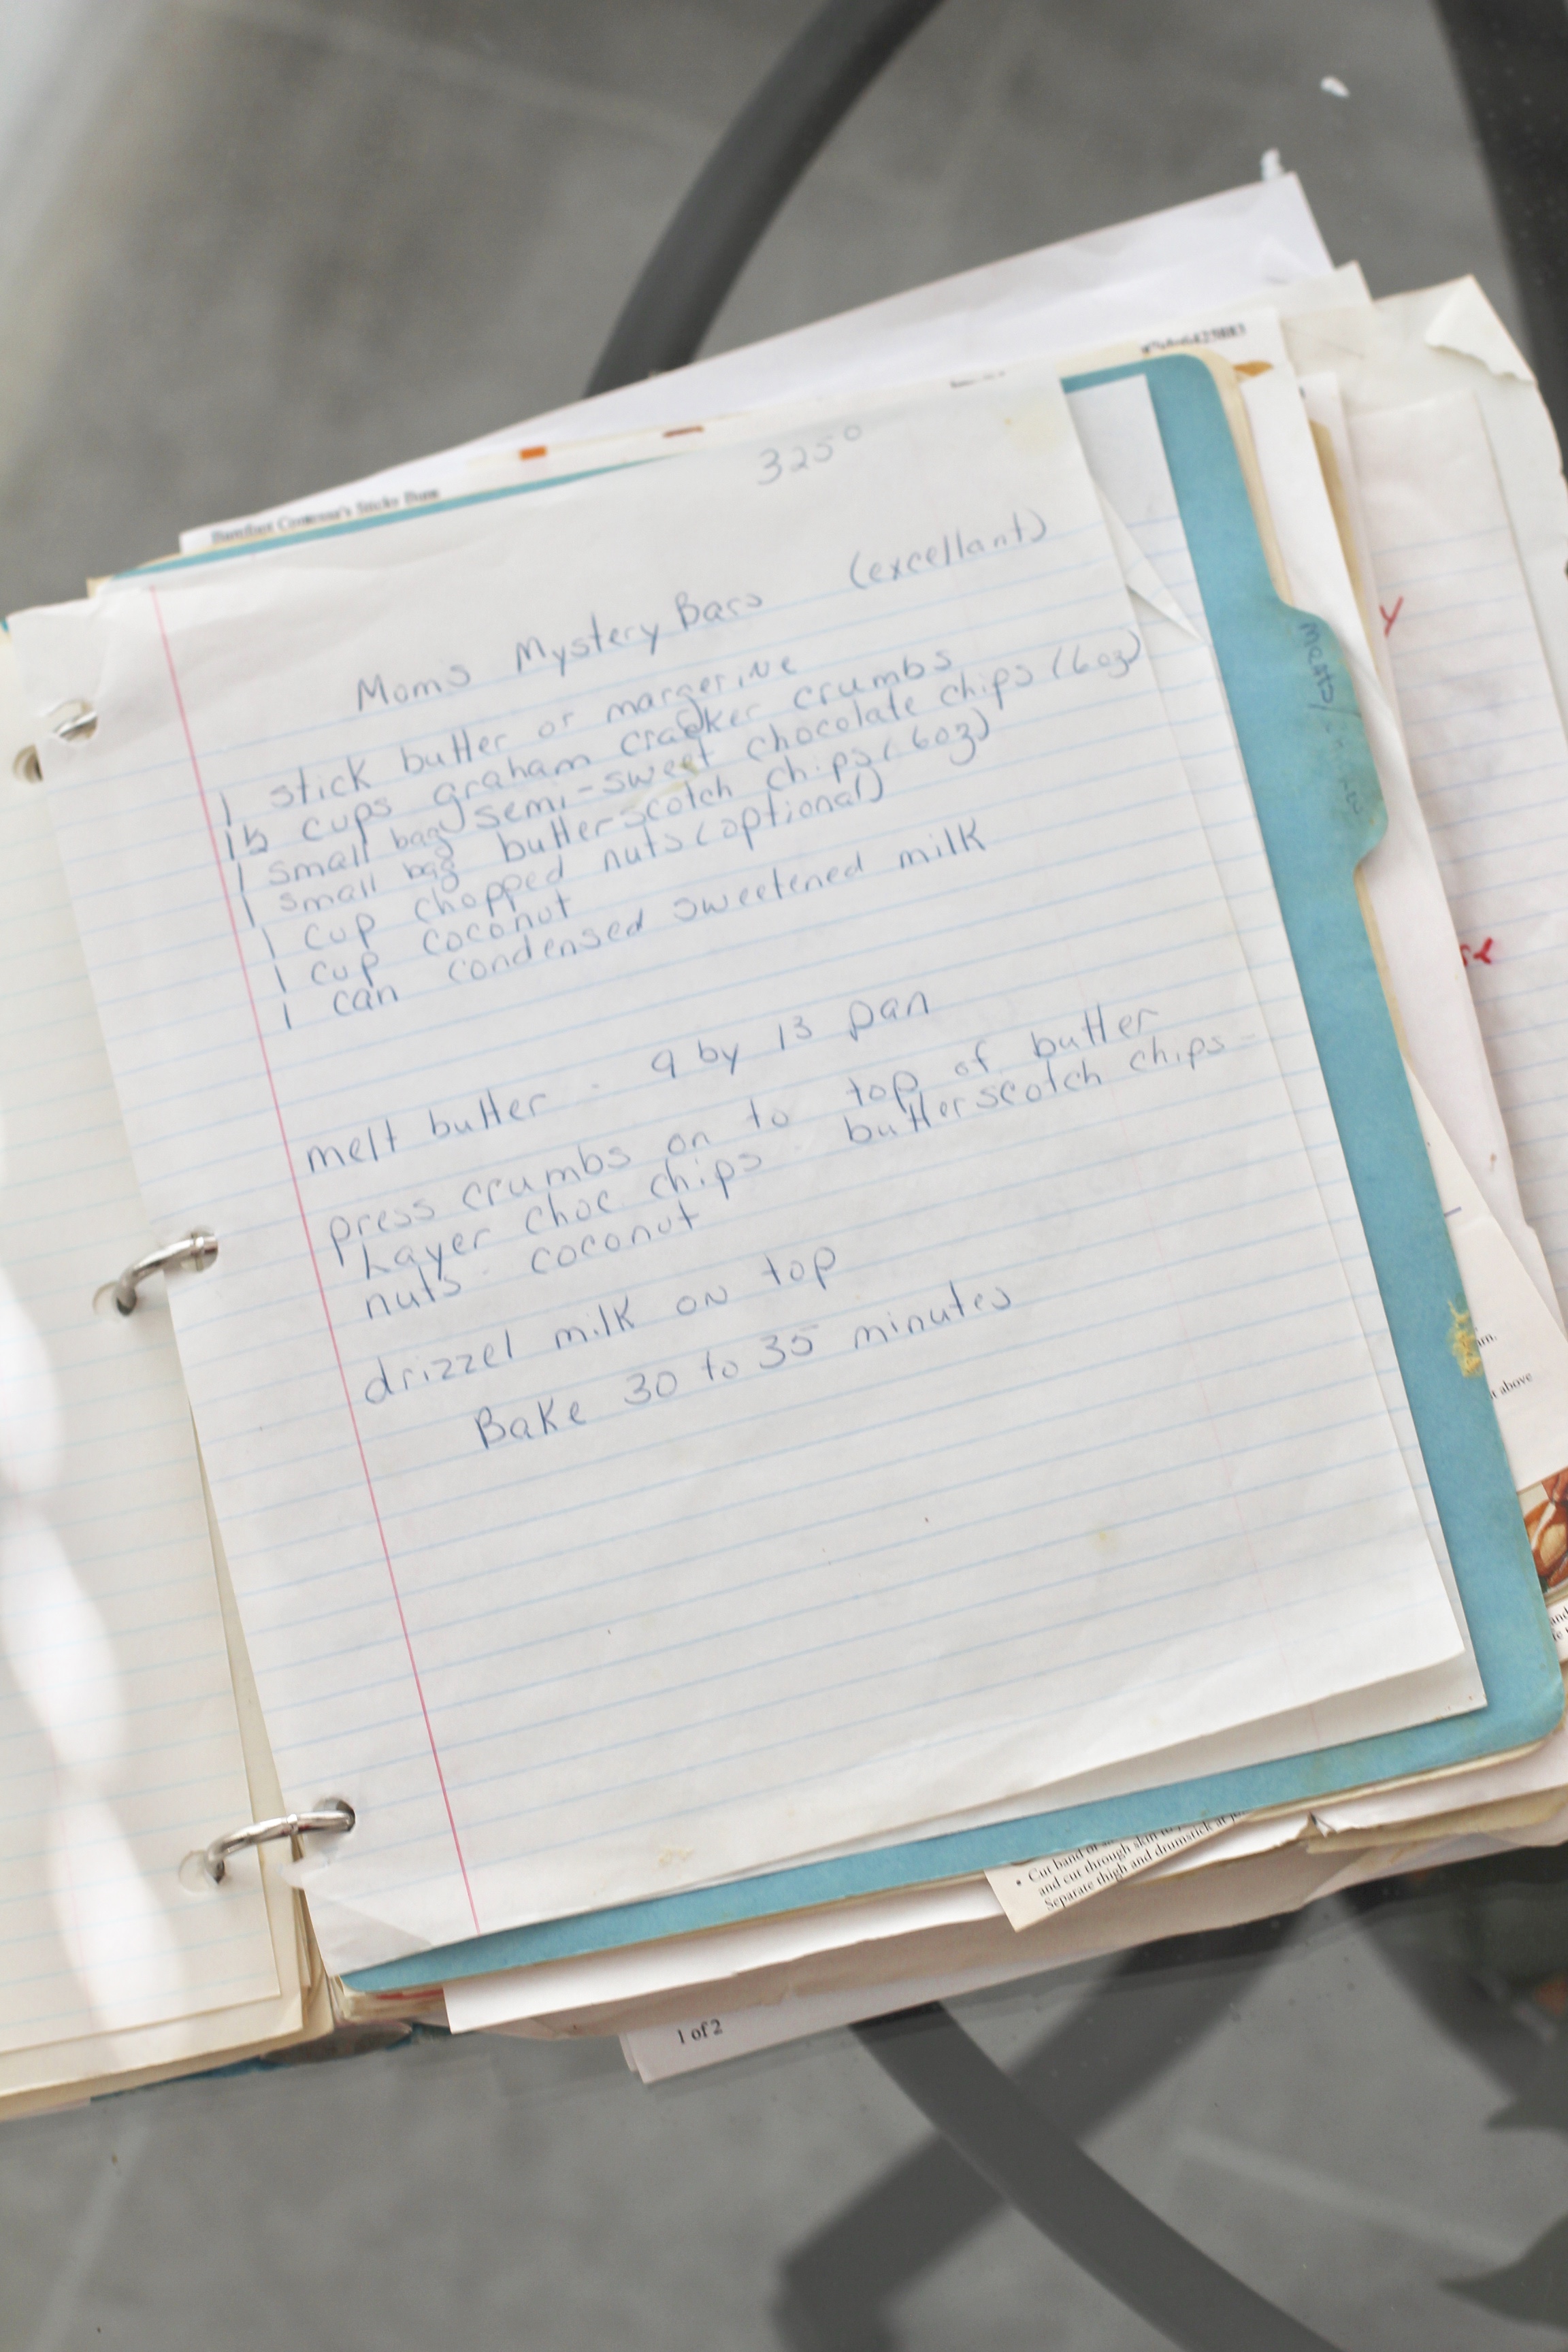 325°
Moms Mystery Bars (excellant)
1 stick butter or margerine
1½ cups graham cracker crumbs
1 small bag semi-sweet chocolate chips (6oz)
1 small bag butterscotch chips (6oz)
1 cup chopped nuts (optional)
1 cup coconut
1 can condensed sweetened milk
melt butter . 9 by 13 pan
press crumbs on to top of butter
Layer choc. chips . butterscotch chips -
nuts . coconut
drizzel milk on top
Bake 30 to 35 minutes
meats/
um.
t above
• Cut band
and cut through skin
Separate thigh and drumstick at
1 of 2